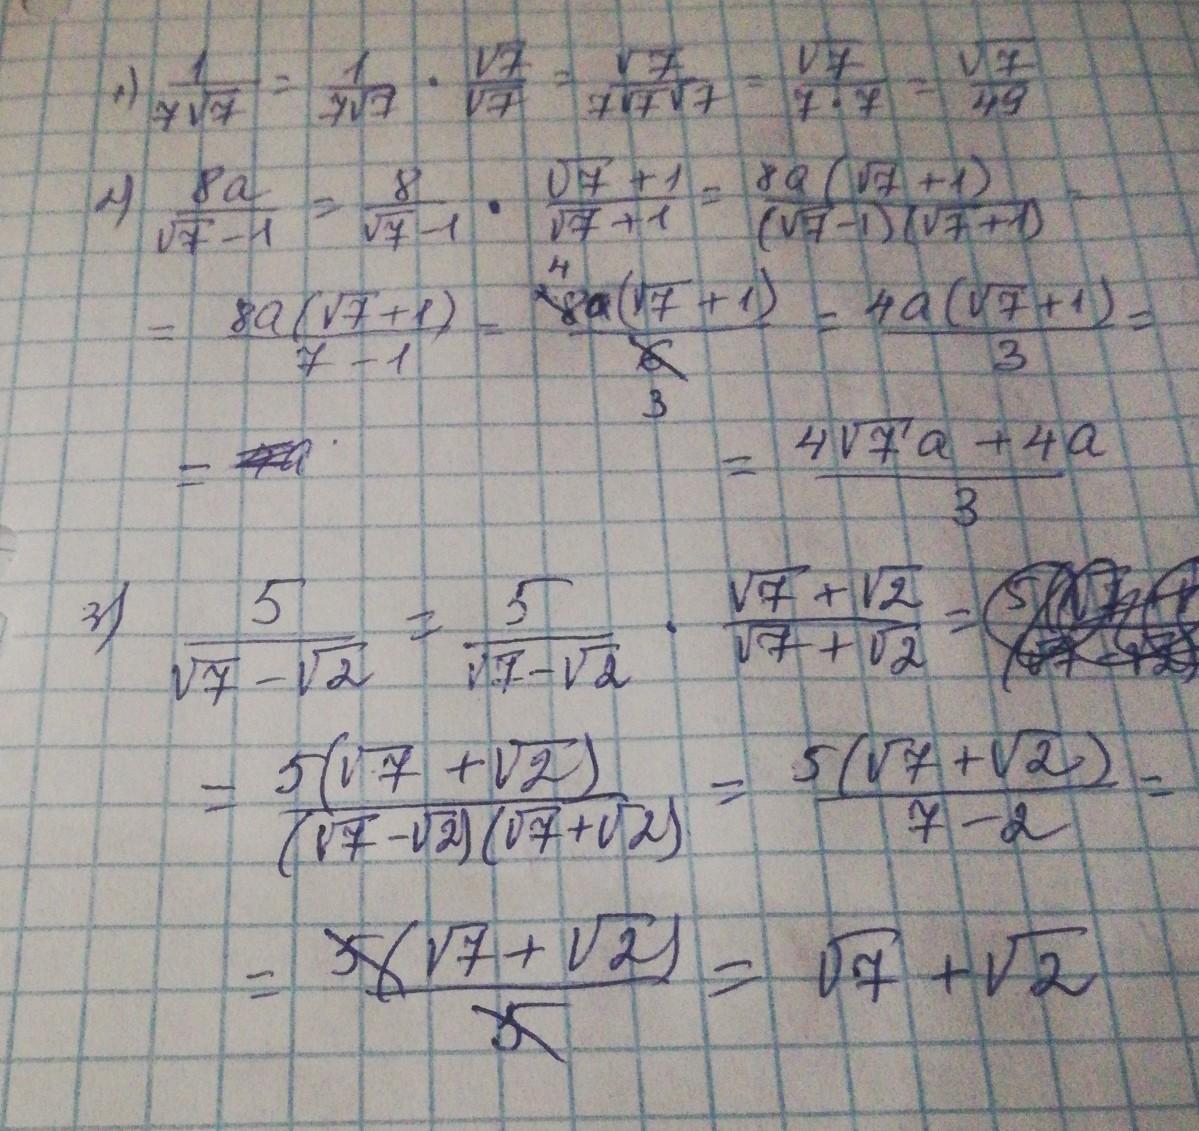 1) 1/(7√7) = 1/(7√7) · √7/√7 = √7/(7√7√7) = √7/(7·7) = √7/49
2) 8a/(√7-1) = 8/(√7-1) · (√7+1)/(√7+1) = 8a(√7+1)/((√7-1)(√7+1)) =
= 8a(√7+1)/(7-1) = 4 8a(√7+1)/(6 3) = 4a(√7+1)/3 =
= = (4√7a+4a)/3
3) 5/(√7-√2) = 5/(√7-√2) · (√7+√2)/(√7+√2) =
= 5(√7+√2)/((√7-√2)(√7+√2)) = 5(√7+√2)/(7-2) =
= 5(√7+√2)/5 = √7+√2